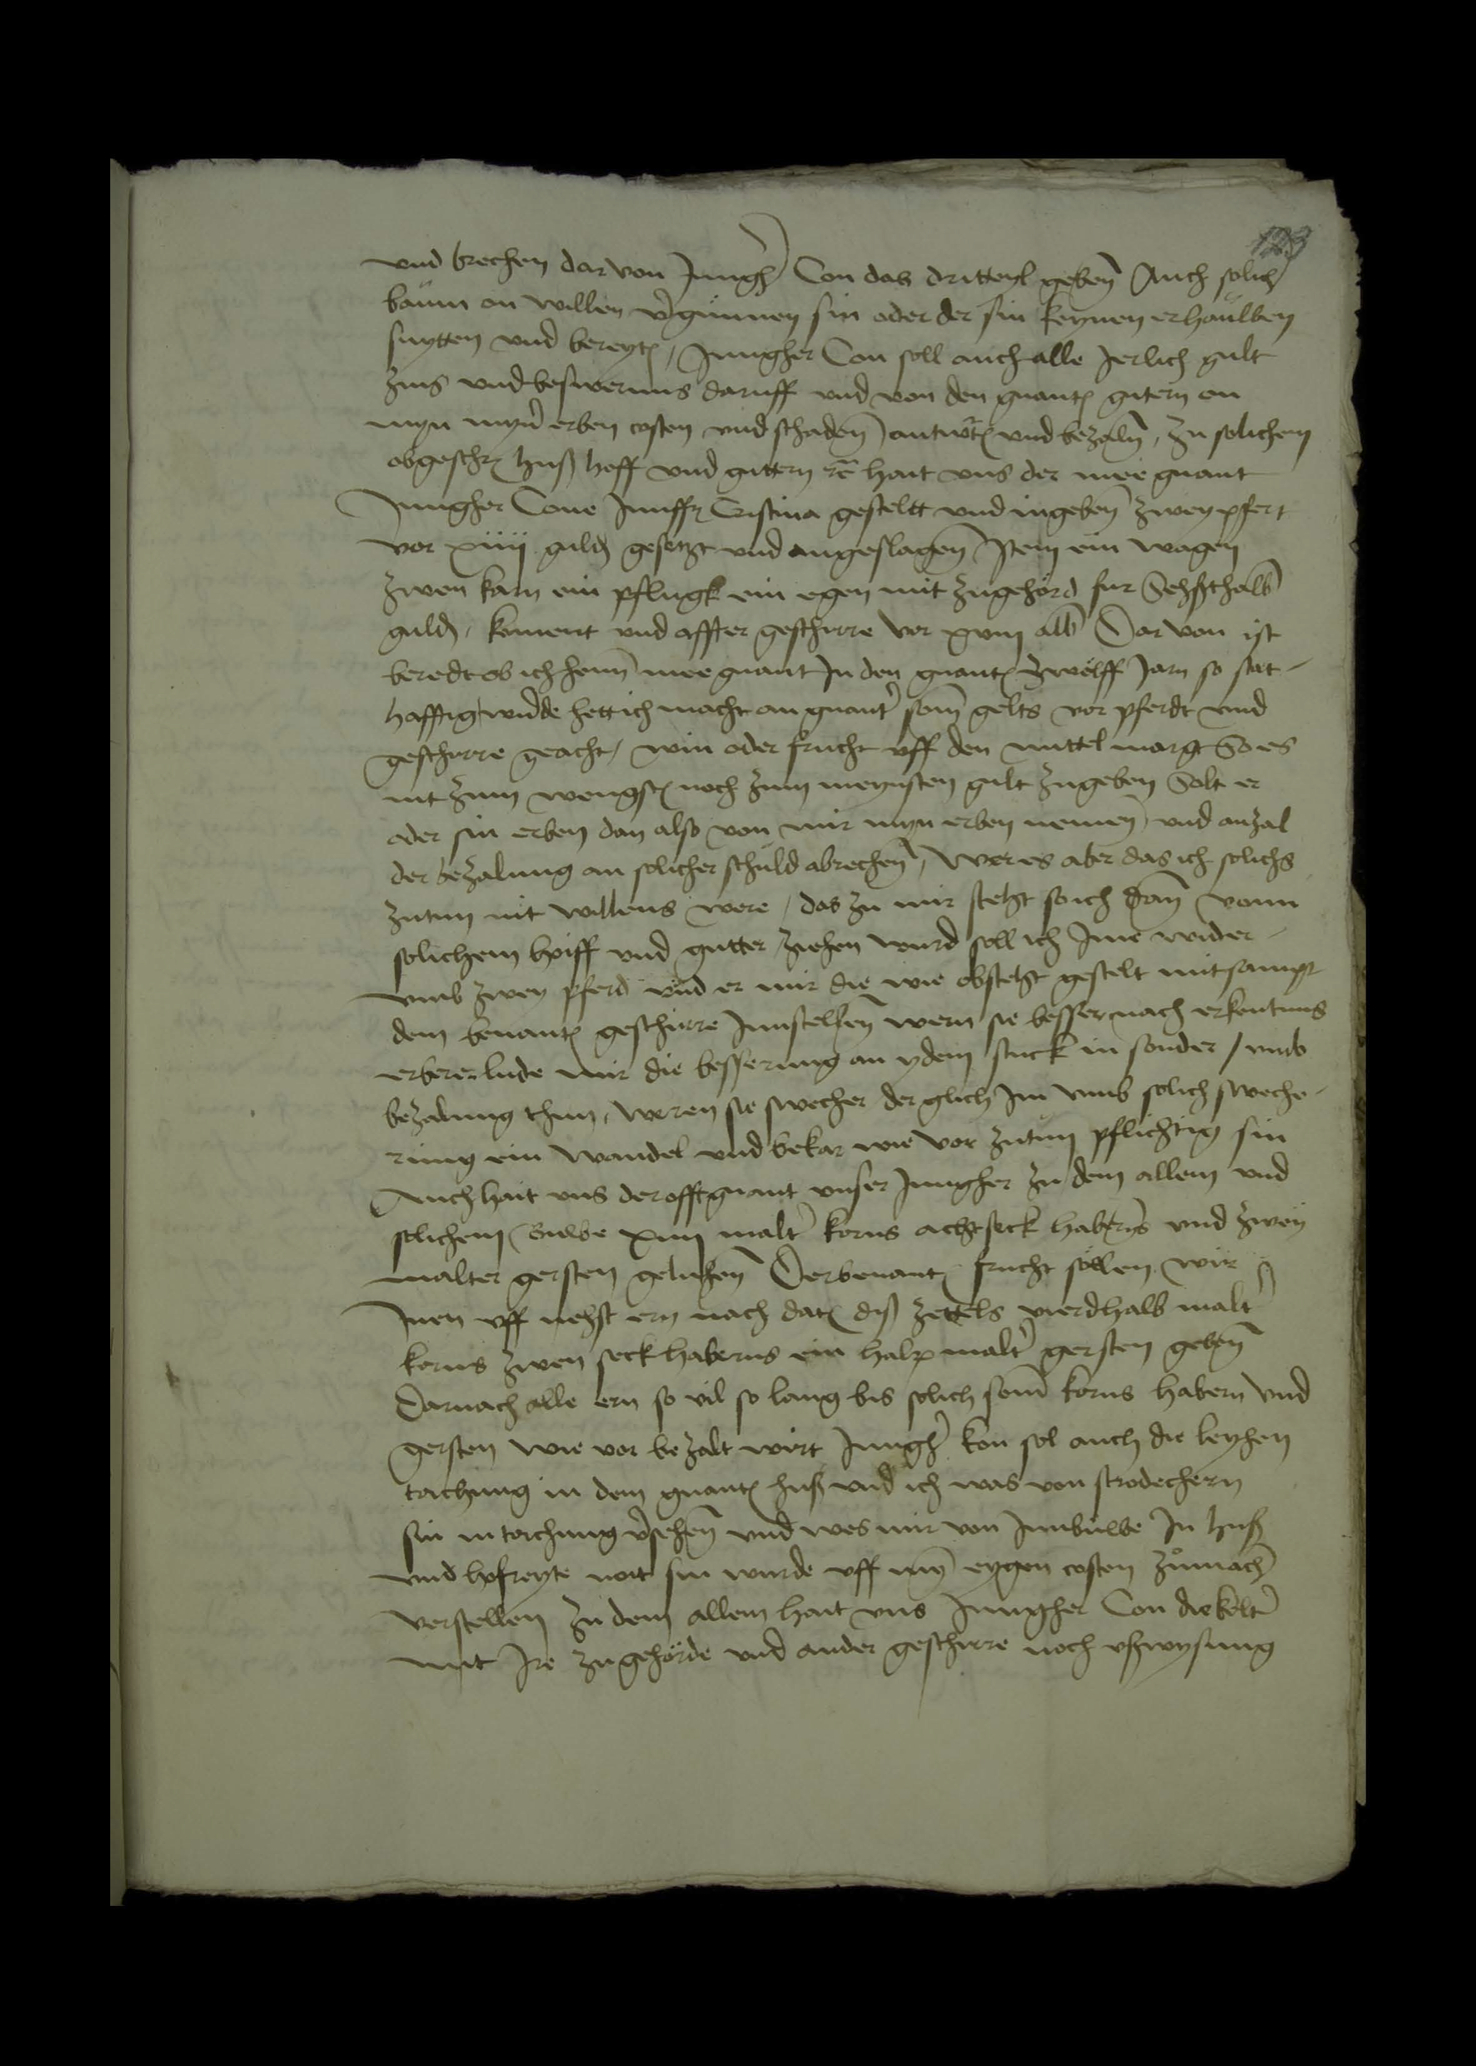 123
und brechen dar von Jungh(er) Con das dritteyl geben Auch solich
baum on willen v(er)gunnen sin oder der sin keynen erhaulben
snytten und bereyt(en), Jungher Con soll auch alle Jerlich gult
zins und beswernus daruff und von den gnant(en) gutern on
myn myn(er) erben costen und schaden antw(or)t(en) und bezaln, zu solichen
obgeschr(iben) huß hoff und guttern rc hait uns der mee gnant
Jungher Cone Junffr(au) Cristina gesteltt und ingeben zwey pfert
vor xiiij guld(en) gesetzt und angeslagen Item ein wagen
zwen karn ein pflugk ein egen mit zugehord fur Sehßthalb
guld(en), koment und affter geschirre vor xviij alb Dar von ist
beredt ob ich henn mee gnant In den gnant(en) zwölff Jarn so stat-
hafftig wurde hett ich macht an gnant(er) som gelts vor pferdt und
geschirre geacht, win oder frucht uff den mittel margt So es
nit zum wengst(en) noch zum meynsten gult zugeben Solt er
oder sin erben dan also von mir myn erben nemen und anzal
der bezalung an solicher schuld abrechen, Wer es aber das ich solichs
zutun nit willens were, das zu mir steht so ich dan vonn
solichem hoiff und gutter ziehen wurd soll ich Ime wider-
umb zwey pferd und er mir die wie obsteht gestelt mitsampt
dem benant(en) geschirre Innstellen wern sie besser nach erkentnus
erberer lude mir die besserung an ydem stuck in sonder / umb
bezalung thun, Weren sie swecher der glich Im umb solich sweche-
rung ein wandel und bekar wie vor zutun pflichtig sin
Auch hait uns der offtgnant unser Jungher zu dem allem und
solichem buwe xiiij malt(er) korns acht seck haberns und zwey
malter gersten geluhen Der benant(en) frucht söllen wir
Inen uff nehst ern nach dat(um) diß zettels vierdhalb malt(er)
korns zwen seck haberns ein halp malt(er) gersten geben
Darnach alle ern so vil so lang bis solich som korns habern und
gersten wie vor bezalt wirt Jungh(er) kon sol auch die leyhen
tachung in dem gnant(en) huß und ich was von strodechern
sin in tachung v(er)sehen und wes mir von Innbuwe In huß
und hofreyte noit sin wurde uff myn eygen costen zumach(en)
verstellen zu dem allem hait uns Jungher Con die kelt(er)
mit Ire zugehörde und ander geschirre noch ußwysung